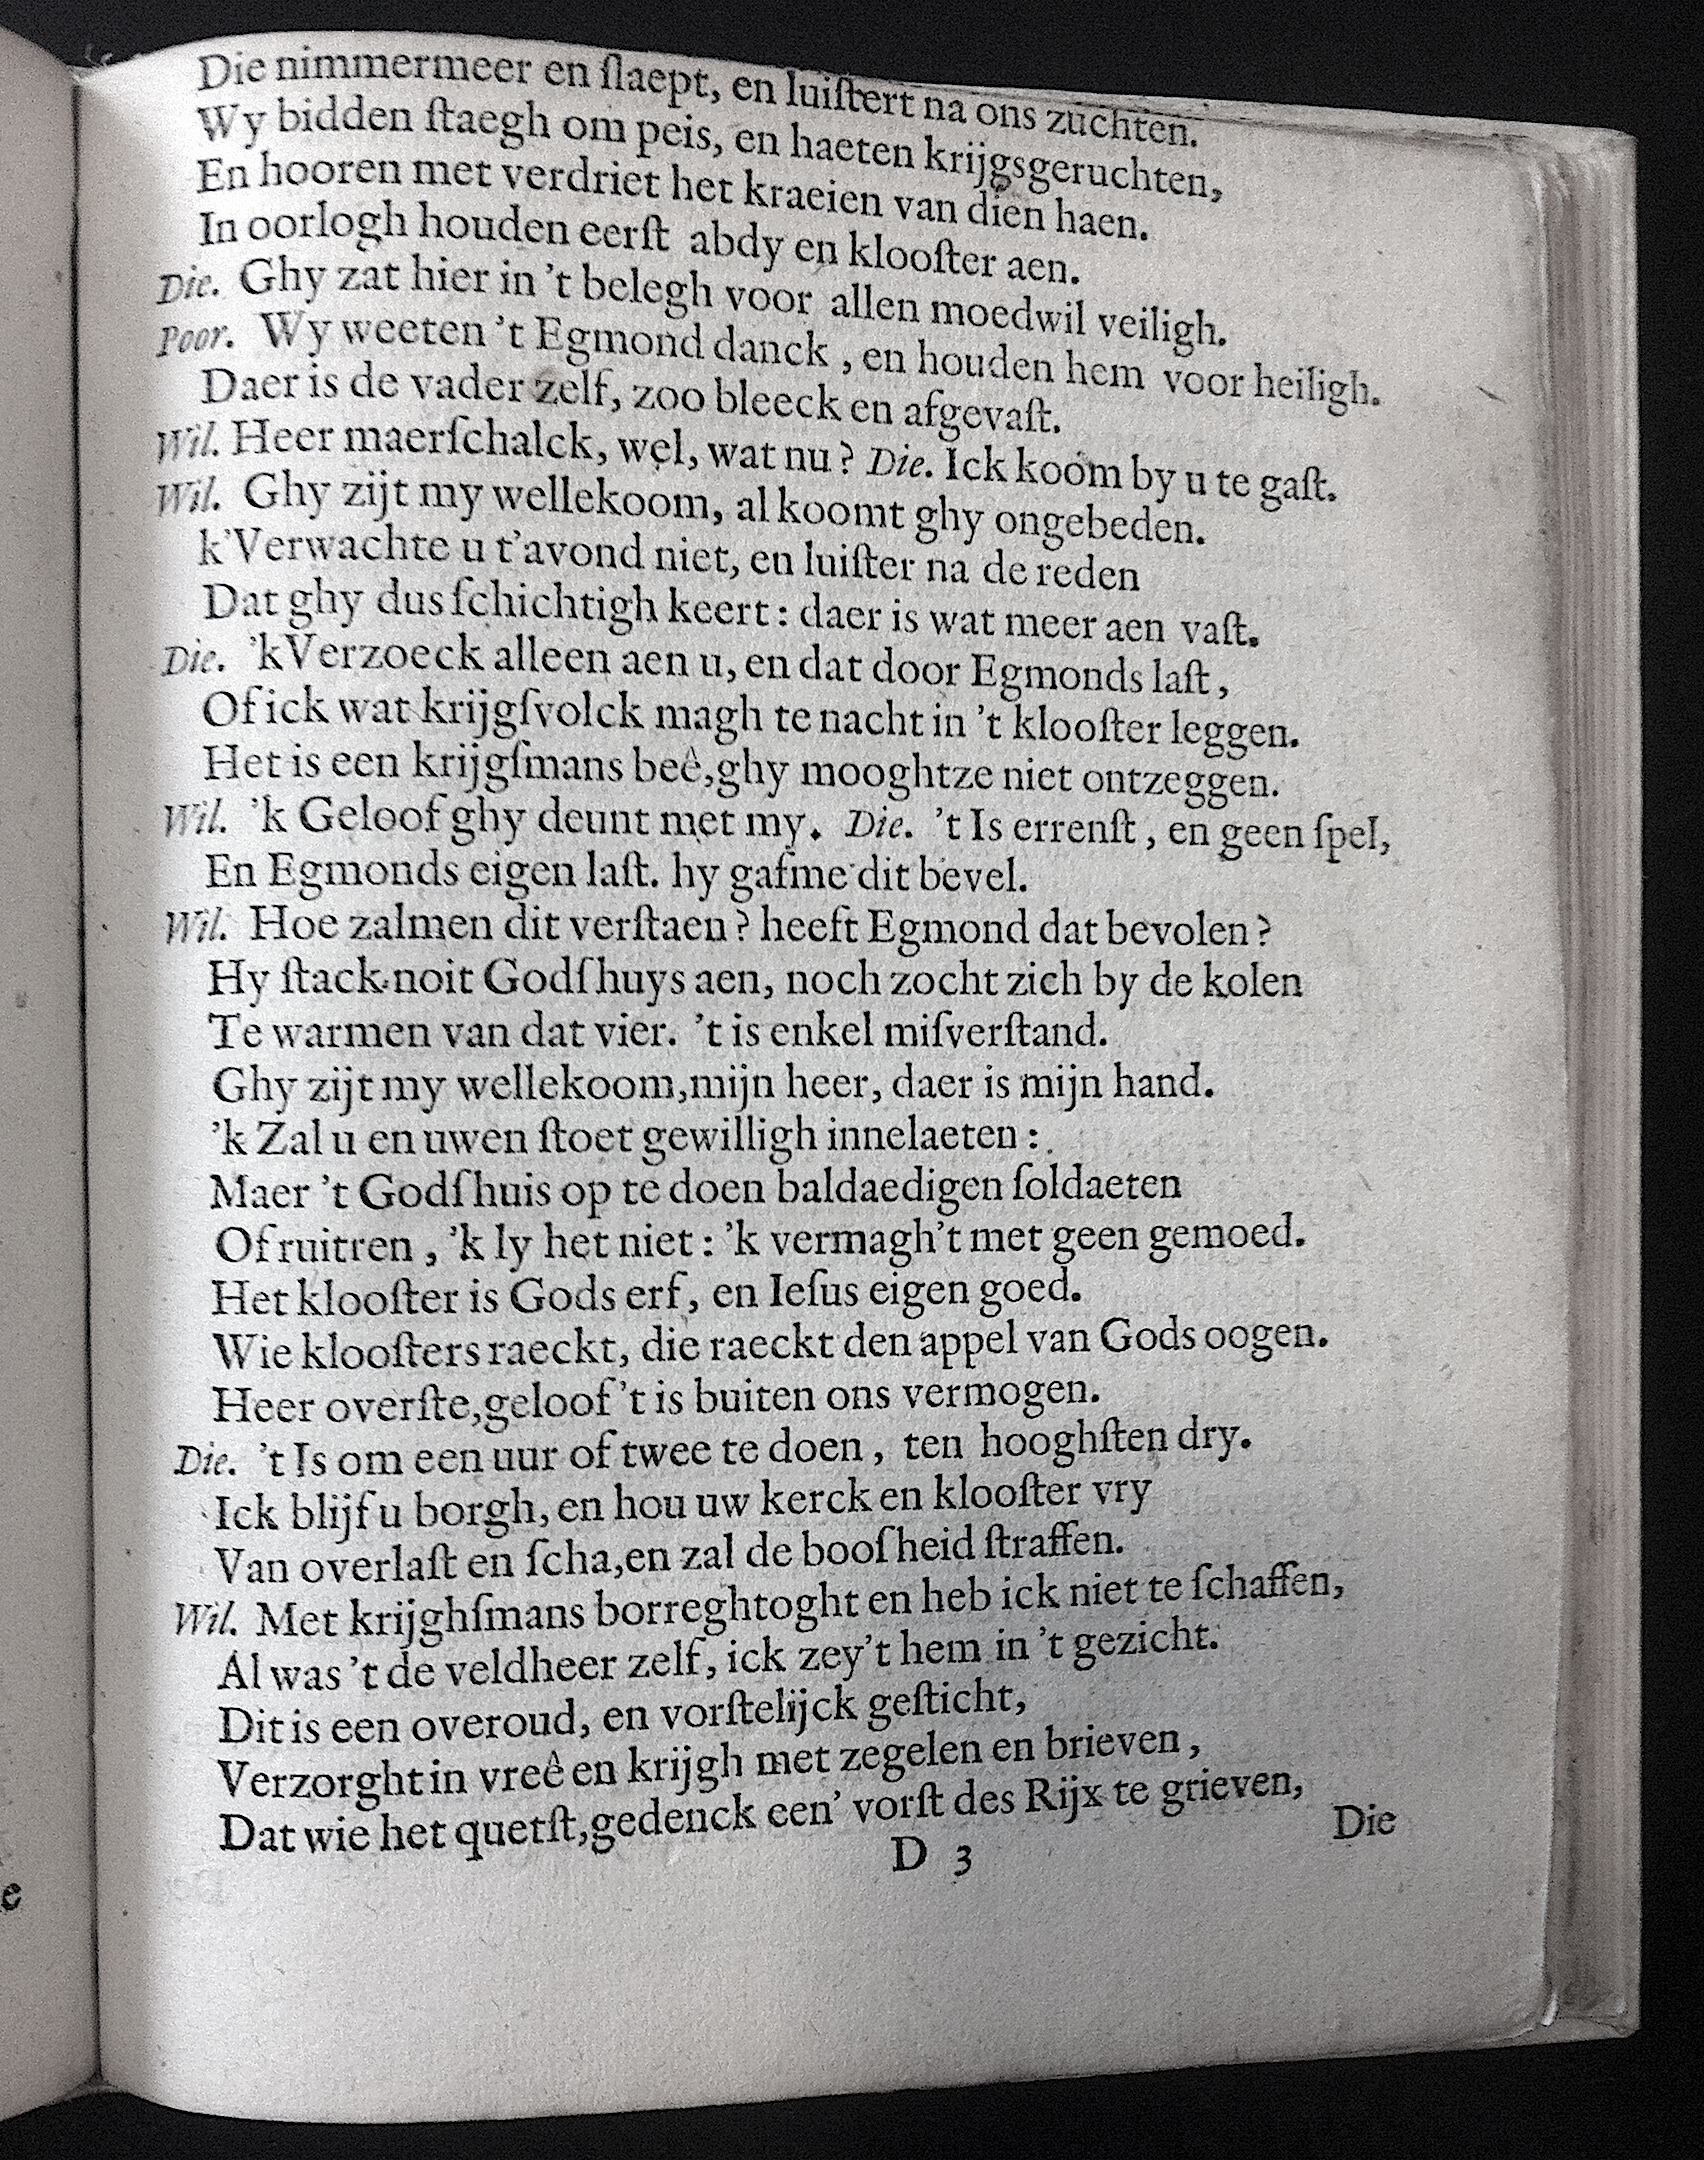 Die nimmermeer en ſlaept, en luiſtert na ons zuchten.
Wy bidden ſtaegh om peis, en haeten krijgsgeruchten,
En hooren met verdriet het kraeien van dien haen.
In oorlogh houden eerſt abdy en klooſter aen.
Die. Ghy zat hier in 't belegh voor allen moedwil veiligh.
Poor. Wy weeten 't Egmond danck, en houden hem voor heiligh.
Daer is de vader zelf, zoo bleeck en afgevaſt.
Wil. Heer maerſchalck, wel, wat nu? Die. Ick koom by u te gaſt.
Wil. Ghy zijt my wellekoom, al koomt ghy ongebeden.
k'Verwachte u t'avond niet, en luiſter na de reden
Dat ghy dus ſchichtigh keert: daer is wat meer aen vaſt.
Die. 'k Verzoeck alleen aen u, en dat door Egmonds laſt,
Of ick wat krijgſvolck magh te nacht in 't klooſter leggen.
Het is een krijgſmans beê, ghy mooghtze niet ontzeggen.
Wil. 'k Geloof ghy deunt met my. Die. 't Is errenſt, en geen ſpel,
En Egmonds eigen laſt. hy gafme dit bevel.
Wil. Hoe zalmen dit verſtaen? heeft Egmond dat bevolen?
Hy ſtack noit Godſhuys aen, noch zocht zich by de kolen
Te warmen van dat vier. 't is enkel miſverſtand.
Ghy zijt my wellekoom, mijn heer, daer is mijn hand.
'k Zal u en uwen ſtoet gewilligh innelaeten:
Maer 't Godſhuis op te doen baldaedigen ſoldaeten
Of ruitren, 'k ly het niet: 'k vermagh't met geen gemoed.
Het klooſter is Gods erf, en Ieſus eigen goed.
Wie klooſters raeckt, die raeckt den appel van Gods oogen.
Heer overſte, geloof 't is buiten ons vermogen.
Die. 't Is om een uur of twee te doen, ten hooghſten dry.
Ick blijf u borgh, en hou uw kerck en klooſter vry
Van overlaſt en ſcha, en zal de booſheid ſtraffen.
Wil. Met krijghſmans borreghtoght en heb ick niet te ſchaffen,
Al was 't de veldheer zelf, ick zey't hem in 't gezicht.
Dit is een overoud, en vorſtelijck geſticht,
Verzorght in vreê en krijgh met zegelen en brieven,
Dat wie het quetſt, gedenck een' vorſt des Rijx te grieven,
D 3
Die
e